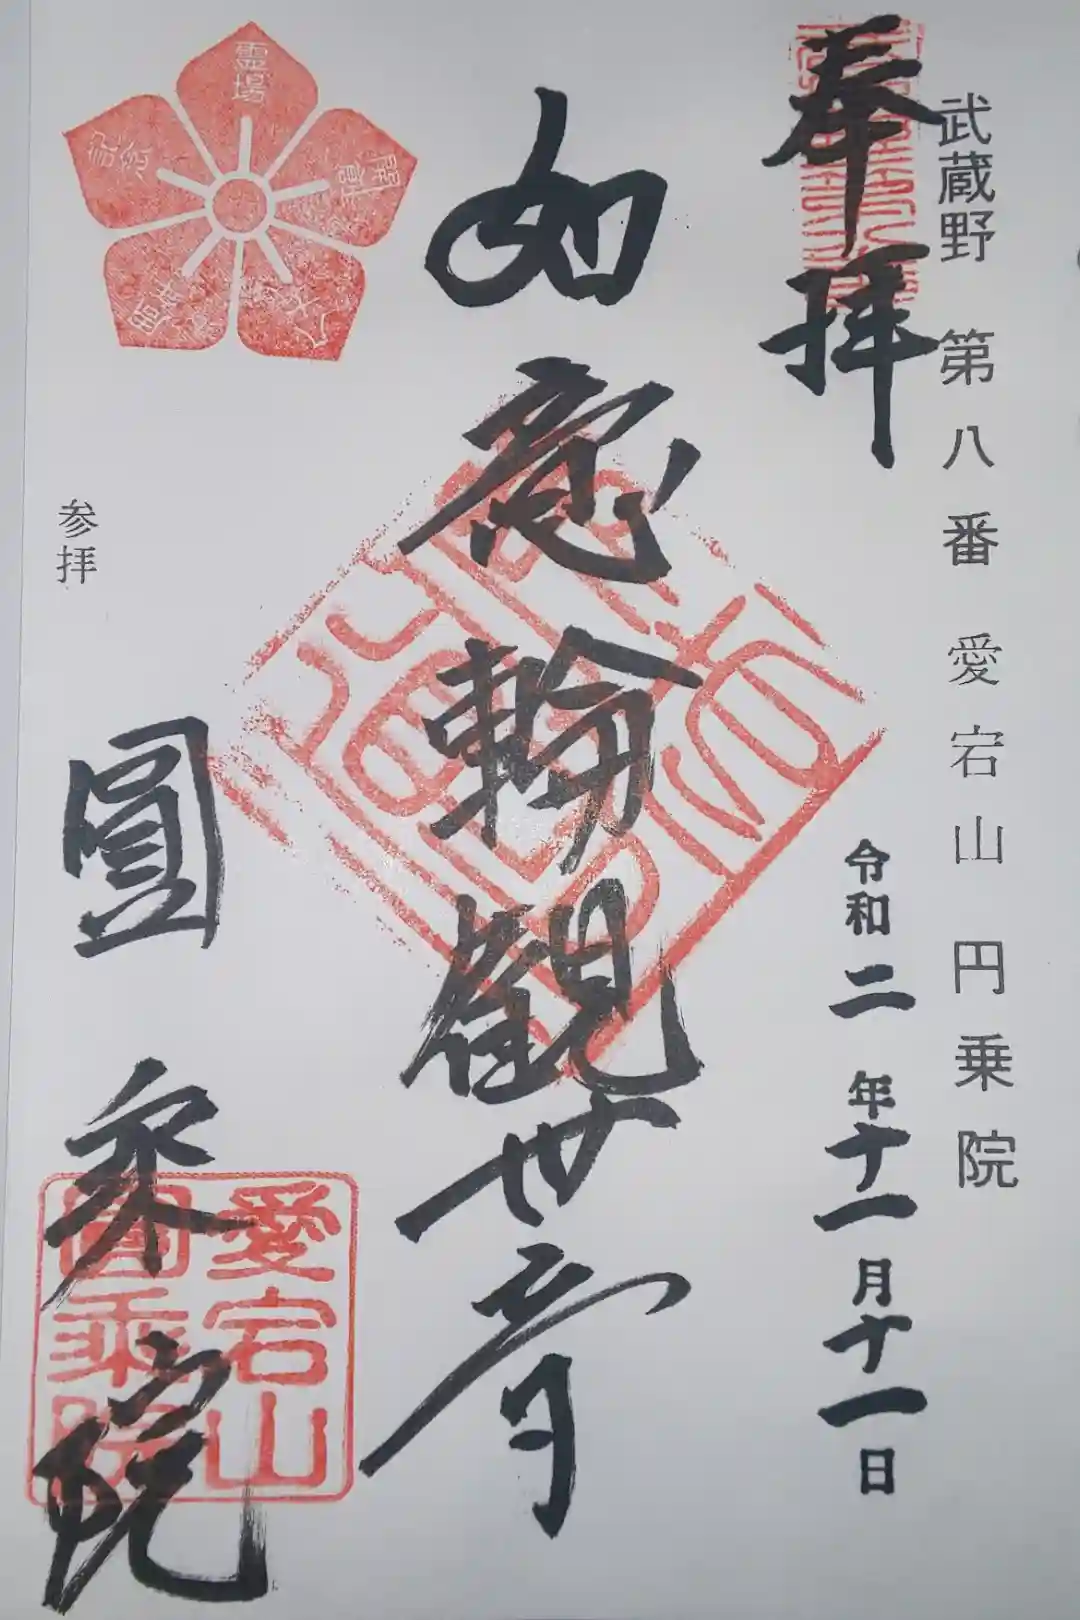 武蔵野 第八番 愛宕山 円乗院
奉拝
令和二年十一月十一日
如意輪観世音
参拝
圓乗院
霊場
開創
記念
愛宕山
圓乗院